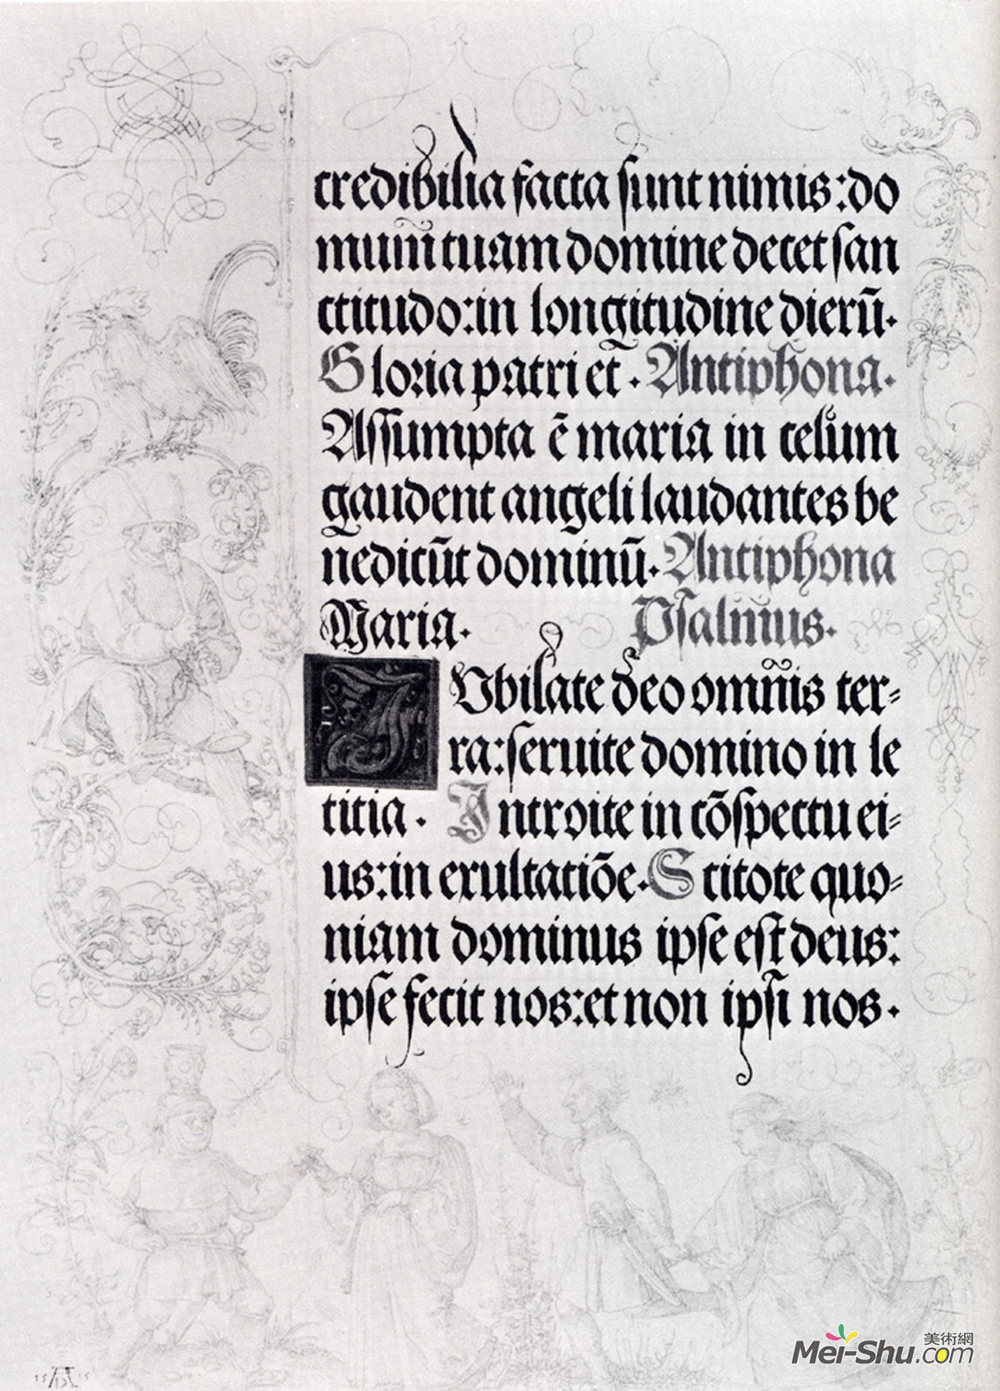 credibilia facta ſunt nimis: do
mum̄ tuam domine decet ſan
ctitudo: in longitudine dierū.
Gloria patri et. Antiphona.
Aſſumpta ē maria in celum
gaudent angeli laudantes be
nedicūt dominū. Antiphona
Maria. Pſalmus.
IVbilate deo omnis ter⸗
ra: ſeruite domino in le
titia. Introite in cōſpectu ei⸗
us: in exultatiōe. Scitote quo⸗
niam dominus ipſe eſt deus:
ipſe fecit nos: et non ipſi nos.
1515
AD
美術網
Mei-Shu.com